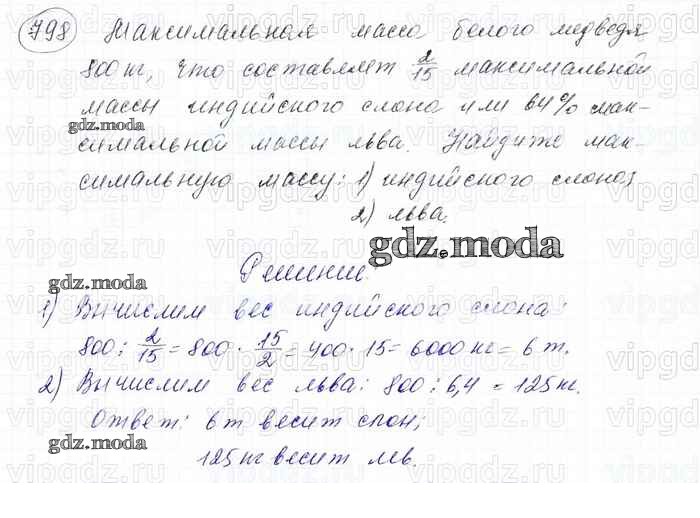 798 Максимальная масса белого медведя
800 кг, что составляет 2/15 максимальной
массы индийского слона или 64% мак-
gdz.moda
симальной массы льва. Найдите мак-
симальную массу: 1) индийского слона;
2) льва.
gdz.moda
Решение.
gdz.moda
1) Вычислим вес индийского слона:
800 : 2/15 = 800 · 15/2 = 400 · 15 = 6000 кг = 6 т.
2) Вычислим вес льва: 800 : 6,4 = 125 кг.
Ответ: 6 т весит слон;
gdz.moda
125 кг весит лев.
vipgdz.ru